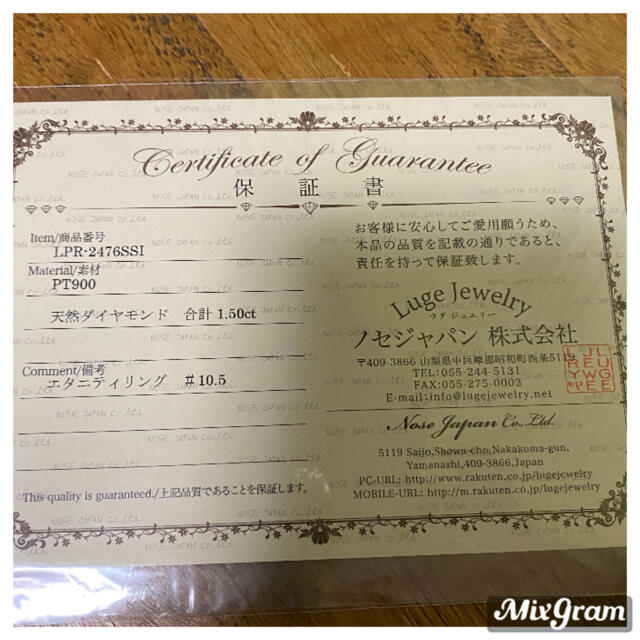 Certificate of Guarantee
保証書
Item/商品番号
LPR・2476SSI
Material/素材
PT900
天然ダイヤモンド 合計 1.50ct
Comment/備考
エタニティリング #10.5
This quality is guaranteed./上記品質であることを保証します。
お客様に安心してご愛用願うため、
本品の品質を記載の通りであると、
責任を持って保証致します。
Luge Jewelry
ラグジュエリー
ノセジャパン 株式会社
〒409-3866 山梨県中巨摩郡昭和町西条5119
TEL:055-244-5131
FAX:055-275-0003
E-mail:info@lugejewelry.net
Nose Japan Co., Ltd.
5119 Saijo,Showa-cho,Nakakoma-gun,
Yamanashi,409-3866,Japan
PC-URL: http://www.rakuten.co.jp/lugejewelry
MOBILE-URL: http://m.rakuten.co.jp/lugejewelry
NOSE JAPAN Co.,Ltd.
MixGram